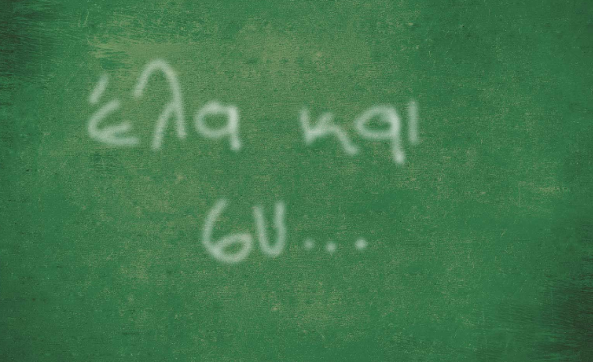 έλα και
συ...